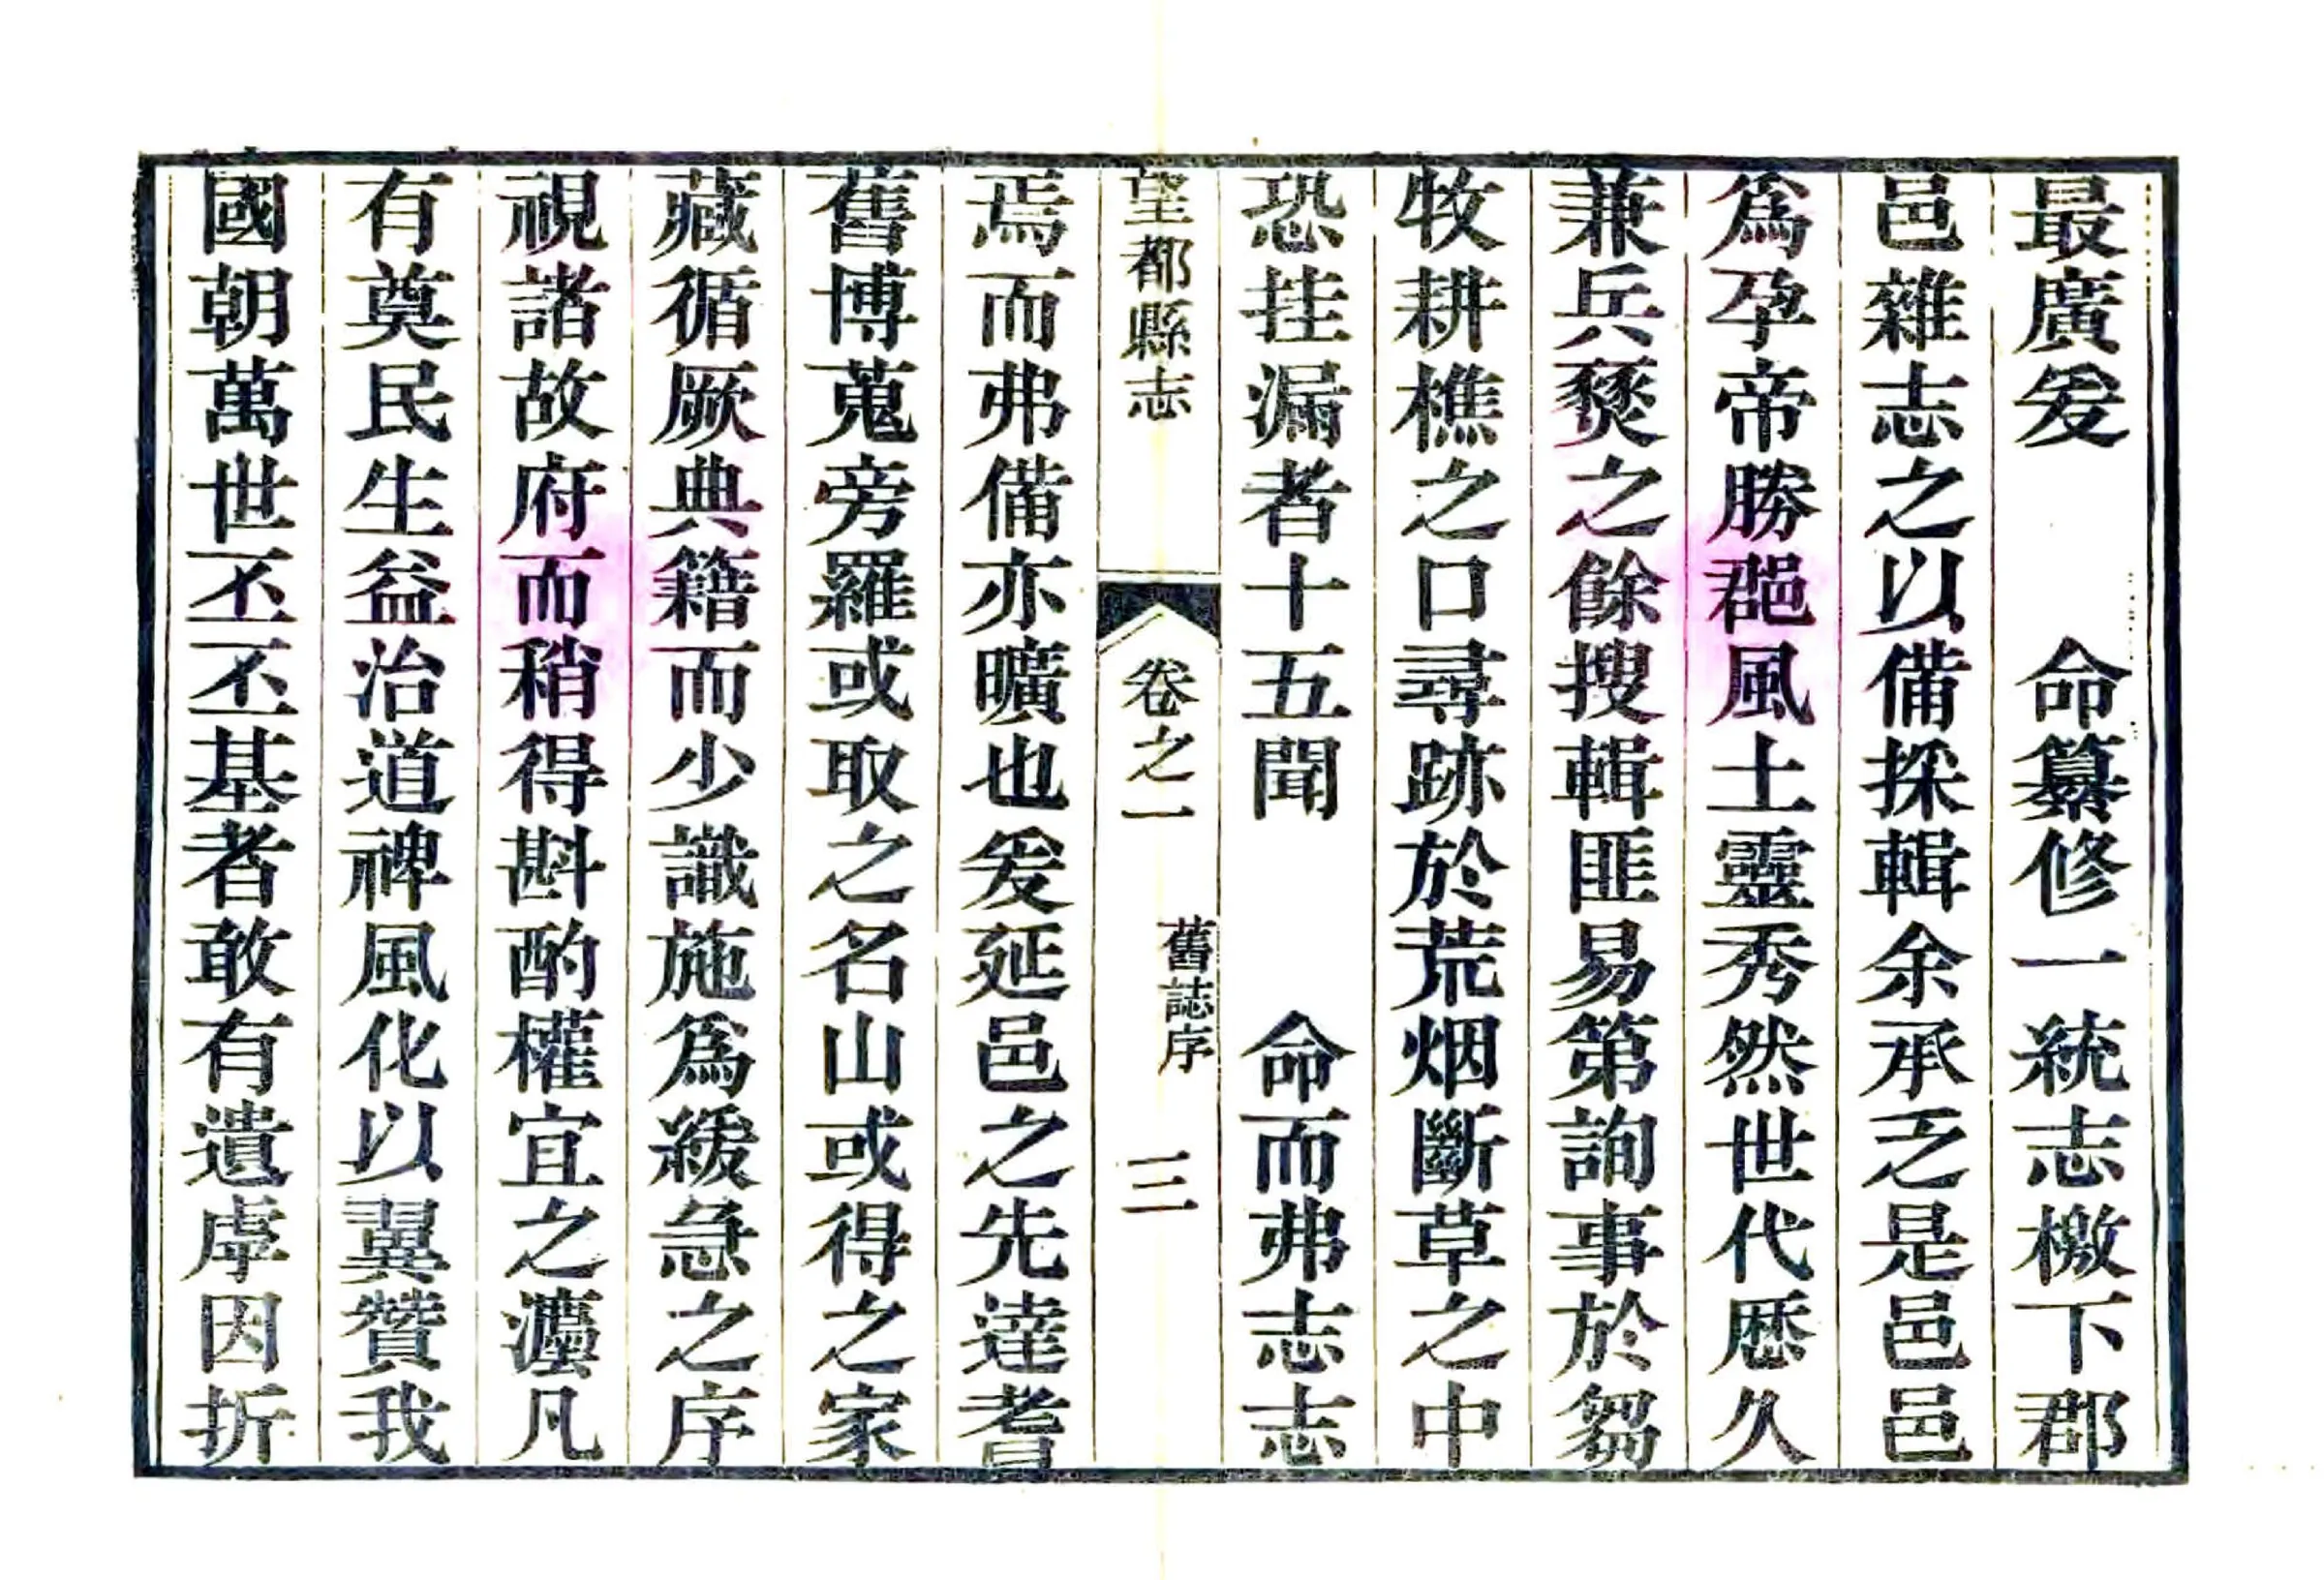 最廣爰　　命纂修一統志檄下郡
邑雜志之以備採輯余承乏是邑邑
爲孕帝勝邑風土靈秀然世代歷久
兼兵燹之餘搜輯匪易第詢事於芻
牧耕樵之口尋跡於荒烟斷草之中
恐挂漏者十五聞　　命而弗志志
望都縣志　卷之一　舊誌序　三
焉而弗備亦曠也爰延邑之先達耆
舊博蒐旁羅或取之名山或得之家
藏循厥典籍而少識施爲緩急之序
視諸故府而稍得斟酌權宜之灋凡
有奠民生益治道裨風化以翼贊我
國朝萬世丕丕基者敢有遺虖因折